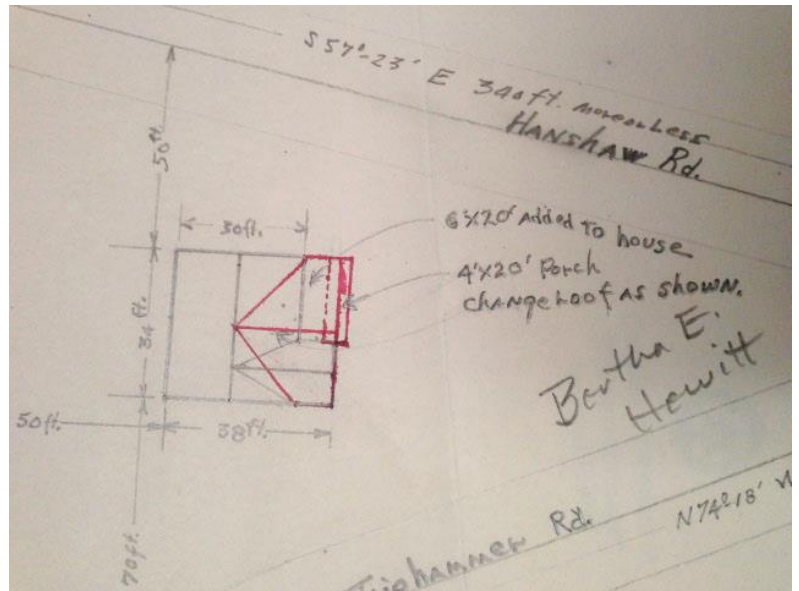 S 57°-23' E 340 ft. more or Less
HANSHAW Rd.
50 ft.
30 ft.
6'X20' Added To house
4'X20' Porch
change roof as shown.
34 ft.
Bertha E.
Hewitt
50 ft.
38 ft.
70 ft.
Triphammer Rd.
N 74°-18' W